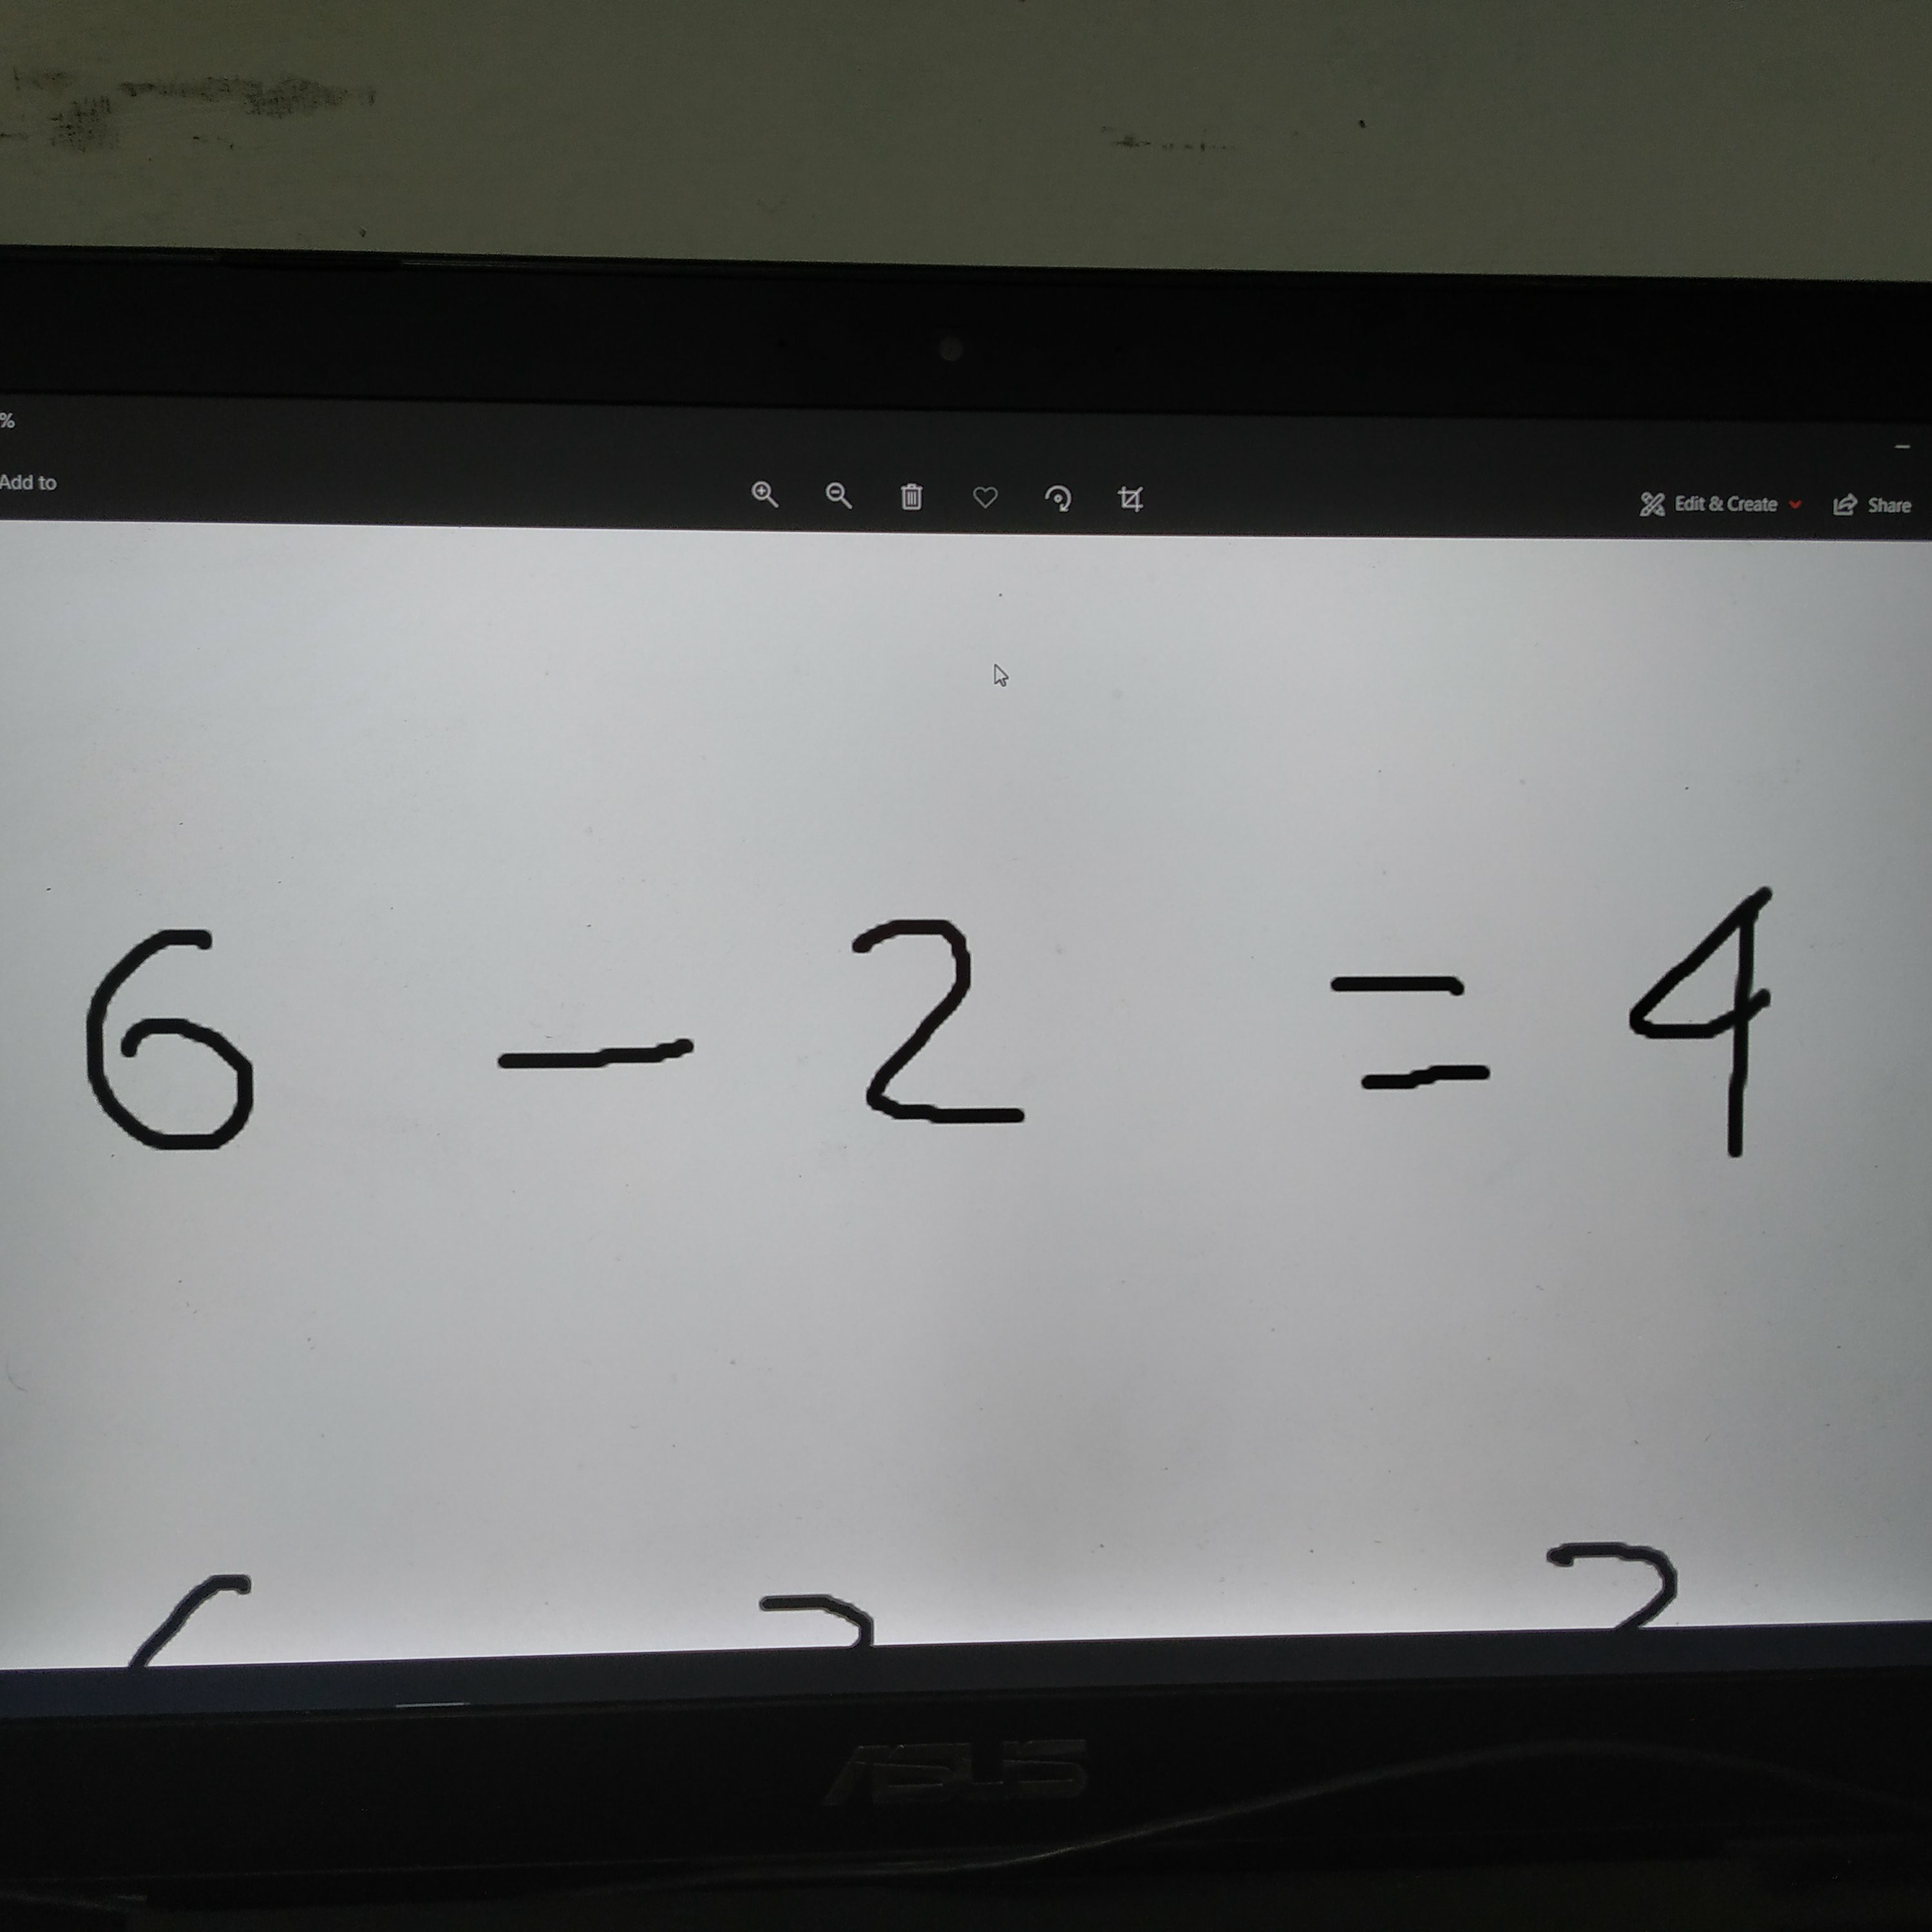 %
Add to
Edit & Create
Share
6 - 2 = 4
ASUS